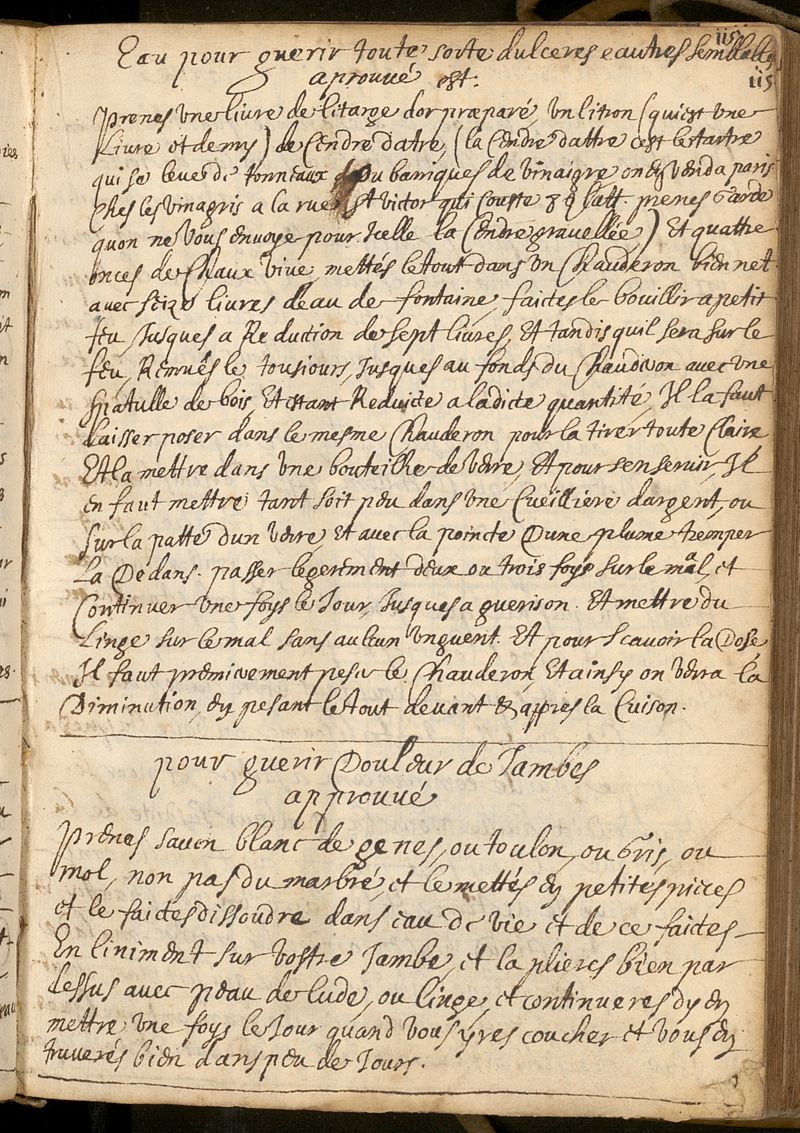 115
Eau pour guerir toute sorte dulceres e autres semblables
115
aprouué est.
Prenes vne liure de litarge dor præparé, vn litron (qui est vne
Liure et demy) de Cendre datre, (la Cendre dattre cest le tartre
qui se leue de tonneaux ou bariques de vinaigre on en vend a paris
Ches les vinagris a la rue St victor qui couste 8 s prenes Garde
quon ne vous enuoye pour Icelle la Cendre grauellée) Et quattre
onces de Chaux viue, mettés le tout dans vn Chauderon bien net
auec seize liures deau de fontaine, faictes le bouillir a petit
feu, Jusques a Reduction de sept liures, Et tandis quil sera sur le
feu, Remués le tousiours, Jusques au fonds du Chauderon auec vne
spatulle de bois, Et estant Reduicte a ladicte quantité, Il la faut
Laisser poser dans le mesme Chauderon pour la tirer toute Claire
Et la mettre dans vne bouteille de verre, Et pour sen seruir, Il
en faut mettre tant soit peu dans vne Cueilliere dargent, ou
sur la patte dun verre, Et auec la poincte Dune plume tremper
La Dedans. passer legerement deux ou trois foys sur le mal, et
Continuer vne foys le Jour, Jusques a guerison. Et mettre du
Linge sur le mal sans aulcun vnguent. Et pour scauoir la Dose,
Il faut premierement peser le Chauderon, Et ainsy on verra la
Diminution, en pesant le tout deuant & appres la Cuison.
pour guerir Douleur de Jambes
approuué
Prenes sauon blanc de genes, ou toulon, ou Gris, ou
mol, non pas du marbré, et le mettés en petites pieces
et le faictes dissoudre dans eau de vie et de ce faictes
En liniment sur vostre Jambe, et la plieres bien par
dessus auec peau de lude, ou linge, et continueres dy en
mettre vne foys le Jour quand vous yres coucher et vous en
truuerés bien dans peu de Jours.